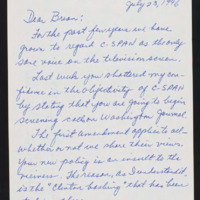 July 23, 1996
Dear Brian:
For the past few years we have
grown to regard C-SPAN as the only
sane voice on the television screen.
Last week you shattered my con-
fidence in the objectivity of C-SPAN
by stating that you are going to begin
screening calls on Washington Journal.
The first amendment applies to all–
whether or not one share their views.
Your new policy is an insult to the
viewers. The reason, as I understand it,
is the "Clinton bashing" that has been